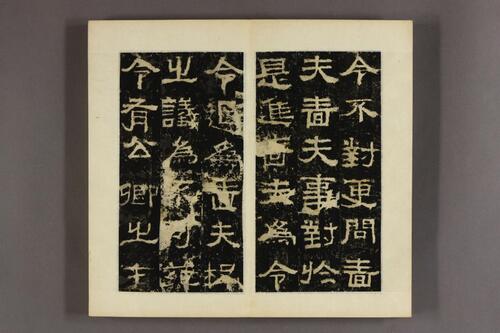 令不對更問嗇
夫嗇夫事對於
是進嗇夫為令
令退為嗇夫釋
之議為不可苑
令有公卿之才